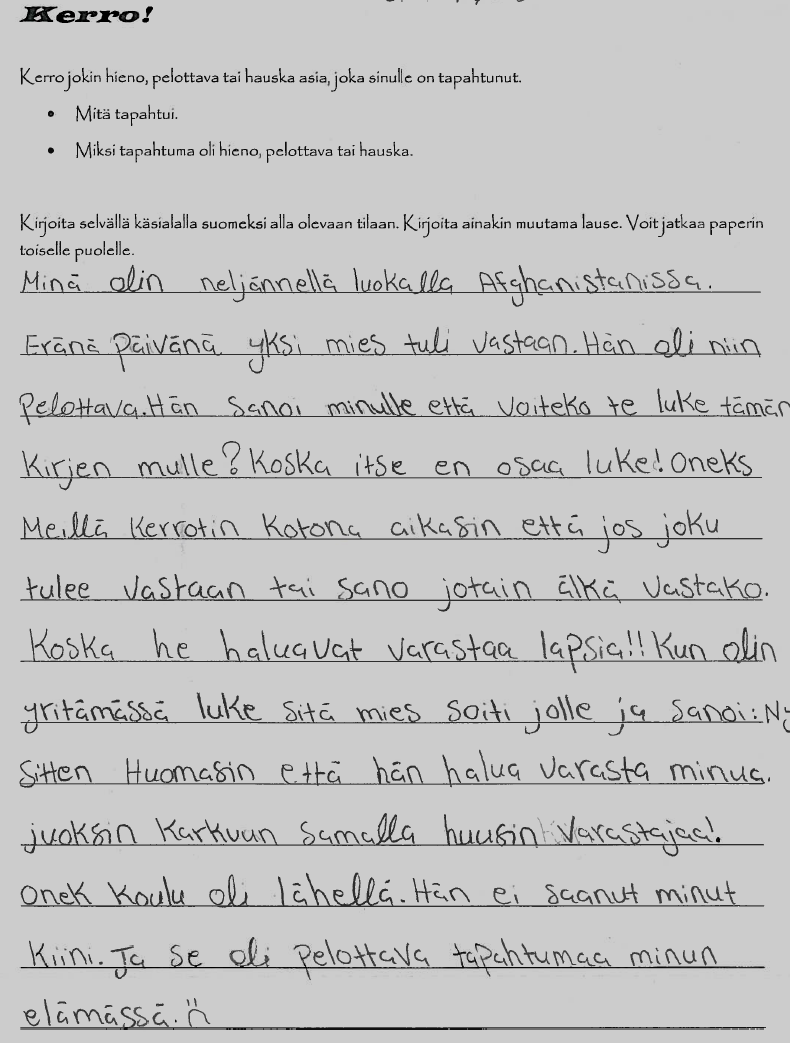 Kerro!
Kerro jokin hieno, pelottava tai hauska asia, joka sinulle on tapahtunut.
• Mitä tapahtui.
• Miksi tapahtuma oli hieno, pelottava tai hauska.
Kirjoita selvällä käsialalla suomeksi alla olevaan tilaan. Kirjoita ainakin muutama lause. Voit jatkaa paperin
toiselle puolelle.
Minä olin neljännellä luokalla Afghanistanissa.
Eränä päivänä yksi mies tuli vastaan. Hän oli niin
Pelottava. Hän sanoi minulle että voiteko te luke tämän
Kirjen mulle? Koska itse en osaa luke! Oneks
Meillä Kerrotin Kotona aikasin että jos joku
tulee vastaan tai sano jotain älkä vastako.
Koska he haluavat varastaa lapsia!! Kun olin
yritämässä luke sitä mies soiti jolle ja sanoi: Ny
Sitten Huomasin että hän halua varasta minua.
juoksin Karkuun samalla huusin Varastajaa!
Onek Koulu oli lähellä. Hän ei saanut minut
Kiini. Ja se oli pelottava tapahtumaa minun
elämässä. :(